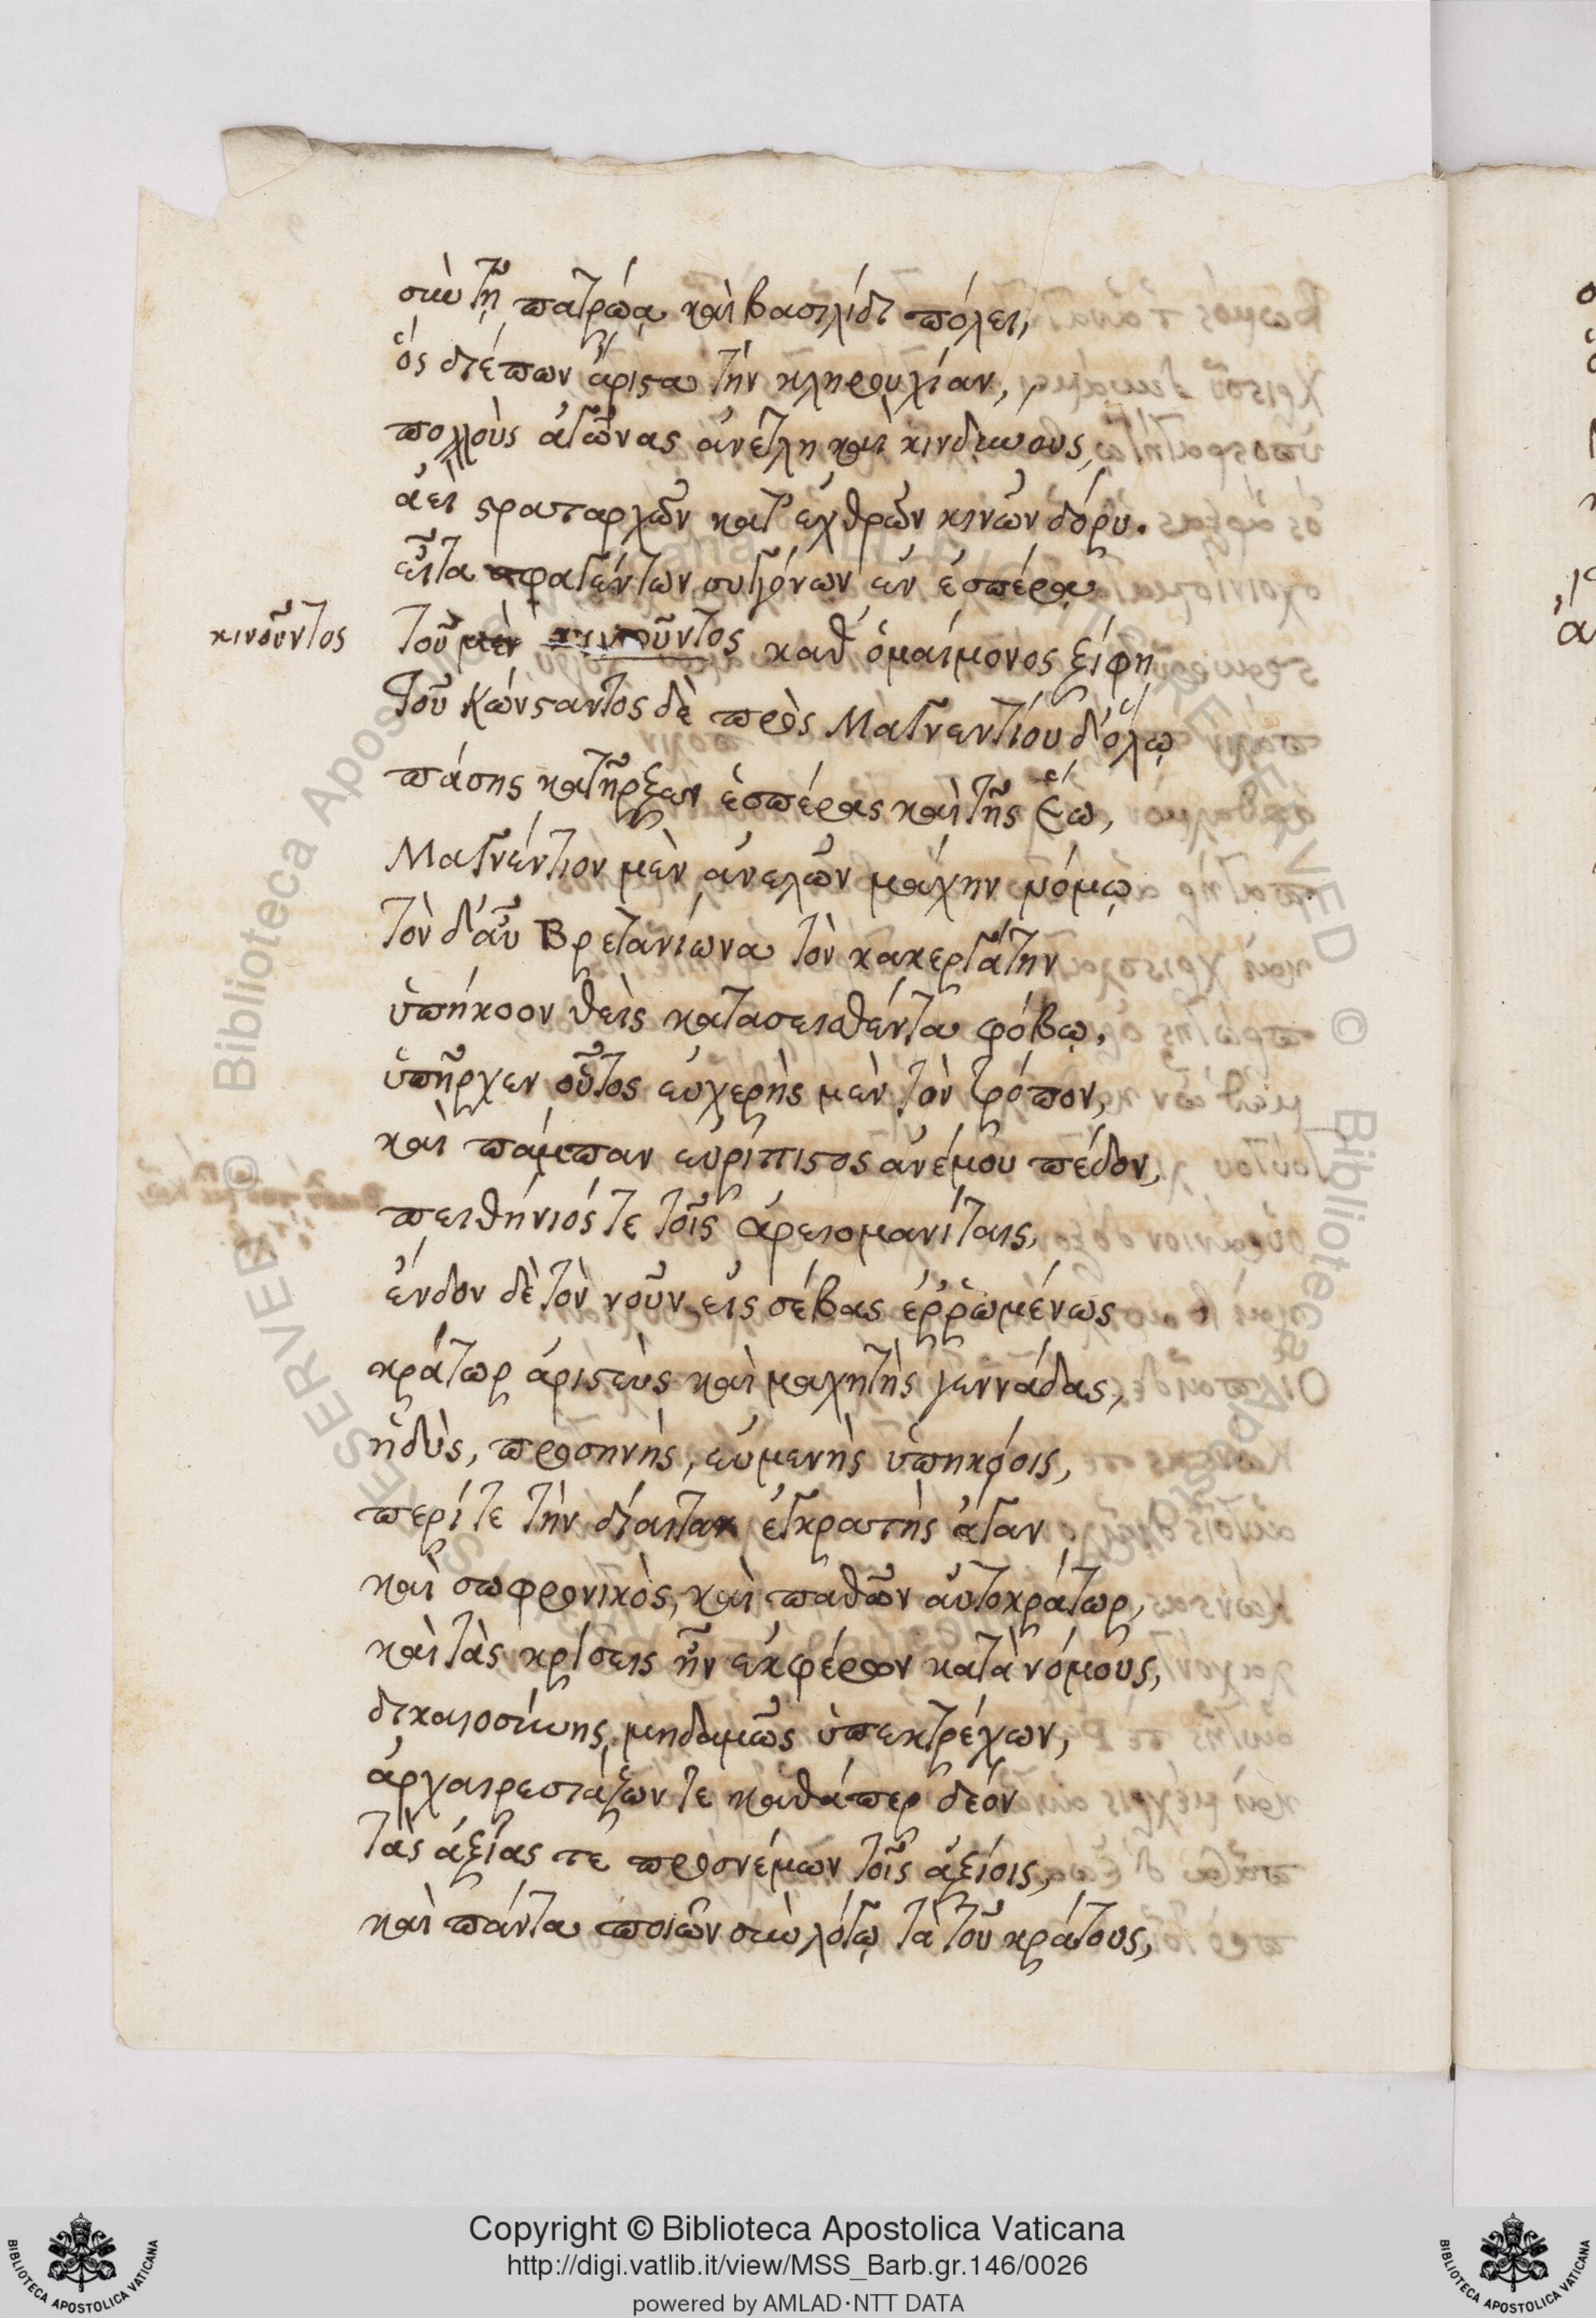 σὺν τῇ πατρώᾳ καὶ βασιλίδι πόλει,
ὃς διέπων ἄριστα τὴν κληρουχίαν,
πολλοὺς ἀγῶνας ἀνέτλη καὶ κινδύνους,
ἀεὶ στραταρχῶν κατ' ἐχθρῶν κινῶν δόρυ.
εἶτα σφαγέντων συγγόνων ἐν ἑσπέρᾳ
κινοῦντος
τοῦ μὲν κινοῦντος καθ' ὁμαίμονος ξίφη
τοῦ Κώνσταντος δὲ πρὸς Μαγνεντίου δόλῳ
πάσης κατῆρξεν ἑσπέρας καὶ τῆς ἕω,
Μαγνέντιον μὲν ἀνελὼν μάχην νόμῳ
τὸν δ' αὖ Βρετανίωνα τὸν κακεργάτην
ὑπήκοον θεὶς κατασεισθέντα φόβῳ.
ὑπῆρχεν οὗτος εὐχερὴς μὲν τὸν τρόπον,
καὶ πάμπαν εὐρίπιστος ἀνέμου πέδον,
πειθήνιός τε τοῖς ἀρειομανίταις,
ἔνδον δὲ τὸν νοῦν εἰς σέβας ἐῤῥωμένως
κράτωρ ἀριστεὺς καὶ μαχητὴς γεννάδας,
ἡδὺς, προσηνὴς, εὐμενὴς ὑπηκόοις,
περί τε τὴν δίαιταν ἐγκρατὴς ἄγαν
καὶ σωφρονικὸς, καὶ παθῶν αὐτοκράτωρ,
καὶ τὰς κρίσεις ἦν ἐκφέρων κατὰ νόμους,
δικαιοσύνης μηδαμῶς ὑπεκτρέχων,
ἀρχαιρεσιάζων τε καθάπερ δέον
τὰς ἀξίας τε προσνέμων τοῖς ἀξίοις,
καὶ πάντα ποιῶν σὺν λόγῳ τὰ τοῦ κράτους,
Copyright © Biblioteca Apostolica Vaticana
http://digi.vatlib.it/view/MSS_Barb.gr.146/0026
powered by AMLAD·NTT DATA